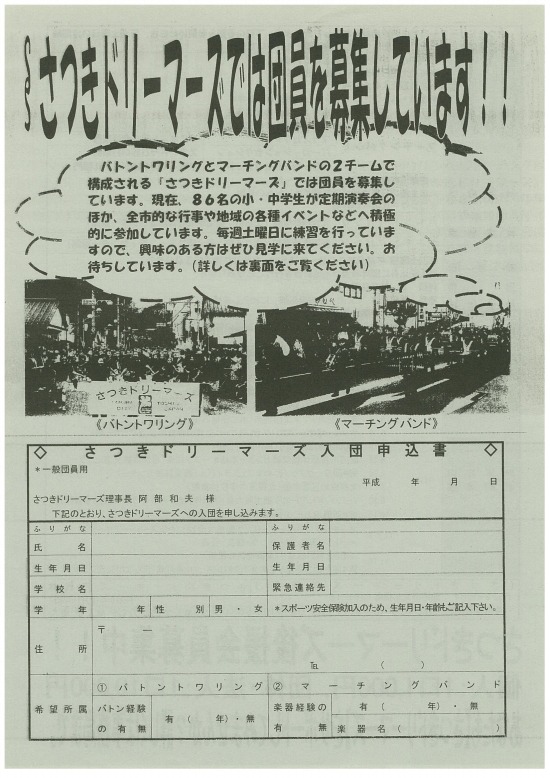 さつきドリーマーズでは団員を募集しています!!
バトントワリングとマーチングバンドの2チームで
構成される「さつきドリーマーズ」では団員を募集し
ています。現在、86名の小・中学生が定期演奏会の
ほか、全市的な行事や地域の各種イベントなどへ積極
的に参加しています。毎週土曜日に練習を行っていま
すので、興味のある方はぜひ見学に来てください。お
待ちしています。(詳しくは裏面をご覧ください)
さつきドリーマーズ
《バトントワリング》
《マーチングバンド》
◇ さつきドリーマーズ入団申込書 ◇
*一般団員用
平成 年 月 日
さつきドリーマーズ理事長 阿部和夫 様
下記のとおり、さつきドリーマーズへの入団を申し込みます。
ふりがな ふりがな
氏名 保護者名
生年月日 生年月日
学校名 緊急連絡先
学年 年 性別 男・女 *スポーツ安全保険加入のため、生年月日・年齢もご記入下さい。
住所 〒 ―
℡ ( )
希望所属 ① バトントワリング ② マーチングバンド
バトン経験の有無 有( 年)・無 楽器経験の有無 有( 年)・無
楽器名( )